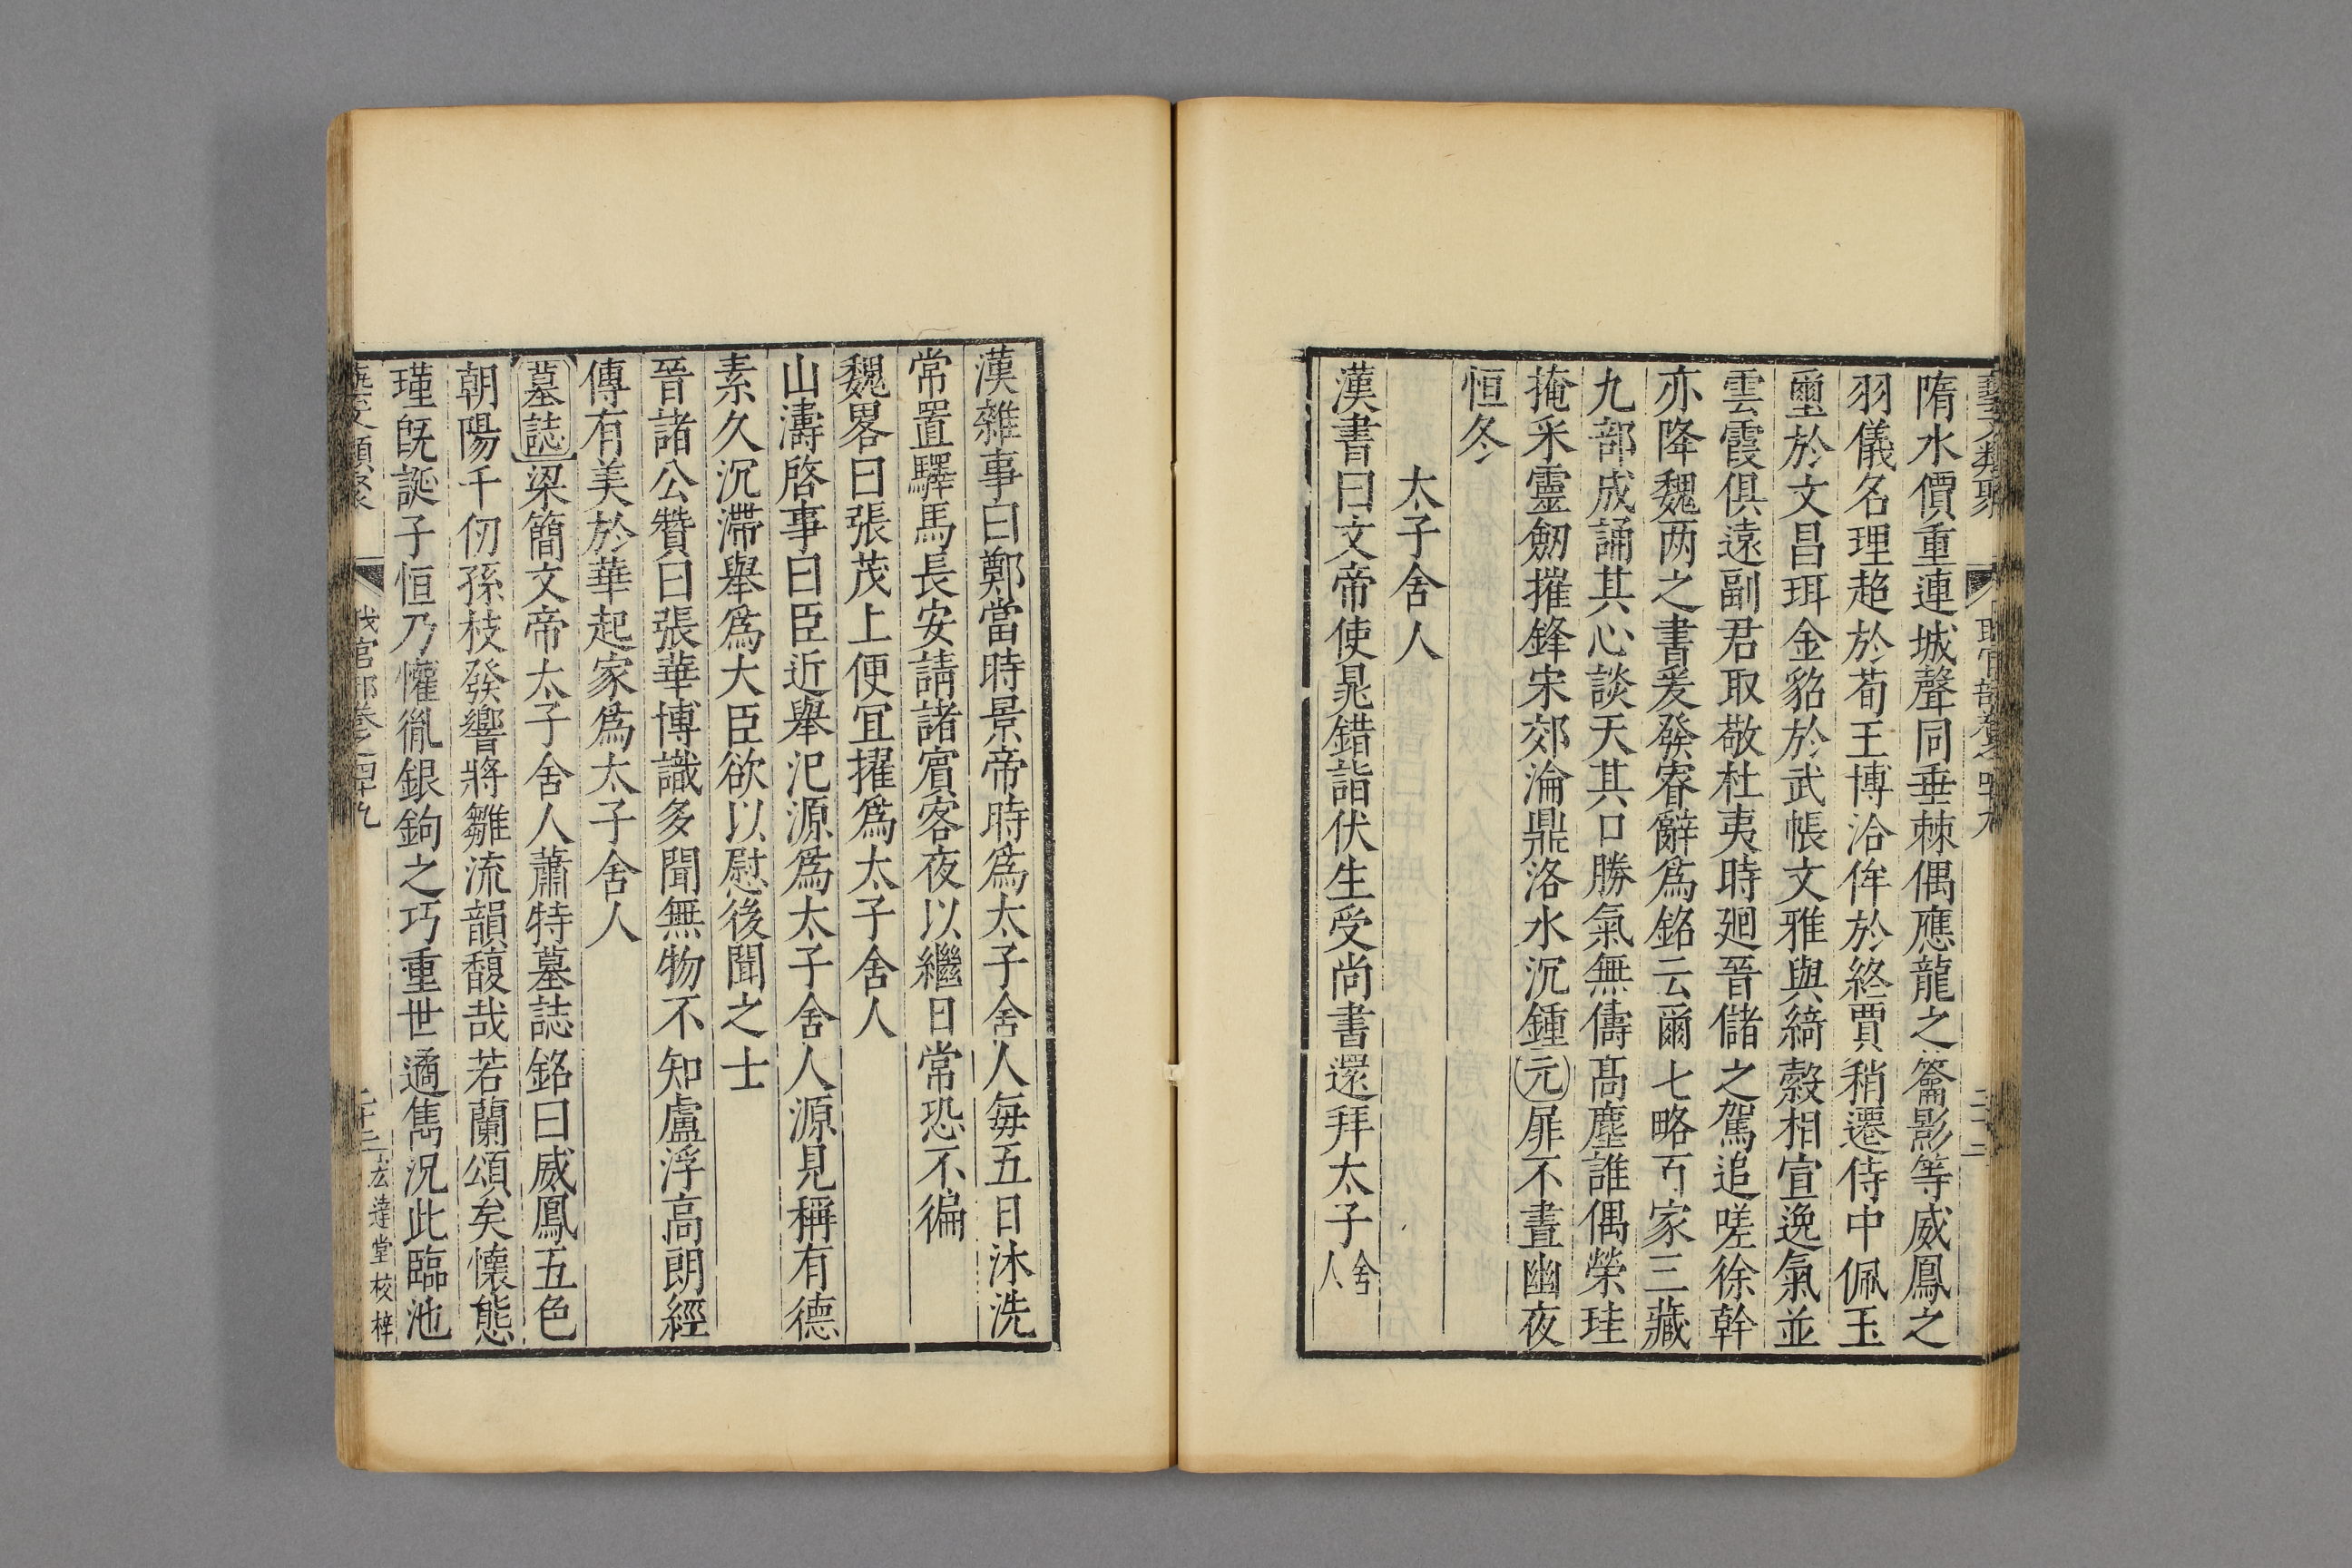 隋水價重連城聲同垂棘偶應龍之籥影等威鳳之
羽儀名理超於荀王博洽侔於終賈稍遷侍中佩玉
璽於文昌珥金貂於武帳文雅與綺縠相宣逸氣並
雲霞俱遠副君取敬杜夷時廻晉儲之駕追嗟徐幹
亦降魏两之書爰發睿辭爲銘云爾七略百家三藏
九部成誦其心談天其口勝氣無儔髙塵誰偶榮珪
掩采靈劒摧鋒宋郊淪鼎洛水沉鍾元扉不晝幽夜
恒冬
太子舍人
漢書曰文帝使晁錯詣伏生受尚書還拜太子舍人
漢雜事曰鄭當時景帝時爲太子舍人每五日沐洗
常置驛馬長安請諸賔客夜以繼日常恐不徧
魏畧曰張茂上便冝擢爲太子舍人
山濤啓事曰臣近舉汜源爲太子舍人源見稱有德
素久沉滯舉爲大臣欲以慰後聞之士
晉諸公贊曰張華博識多聞無物不知盧浮高朗經
傳有美於華起家爲太子舍人
墓誌梁簡文帝太子舍人蕭特墓誌銘曰威鳳五色
朝陽千仞孫枝發響將雛流韻馥哉若蘭頌矣懷態
瑾旣誕子恒乃懽胤銀鉤之巧重世遹雋況此臨池
二十二宏達堂校梓